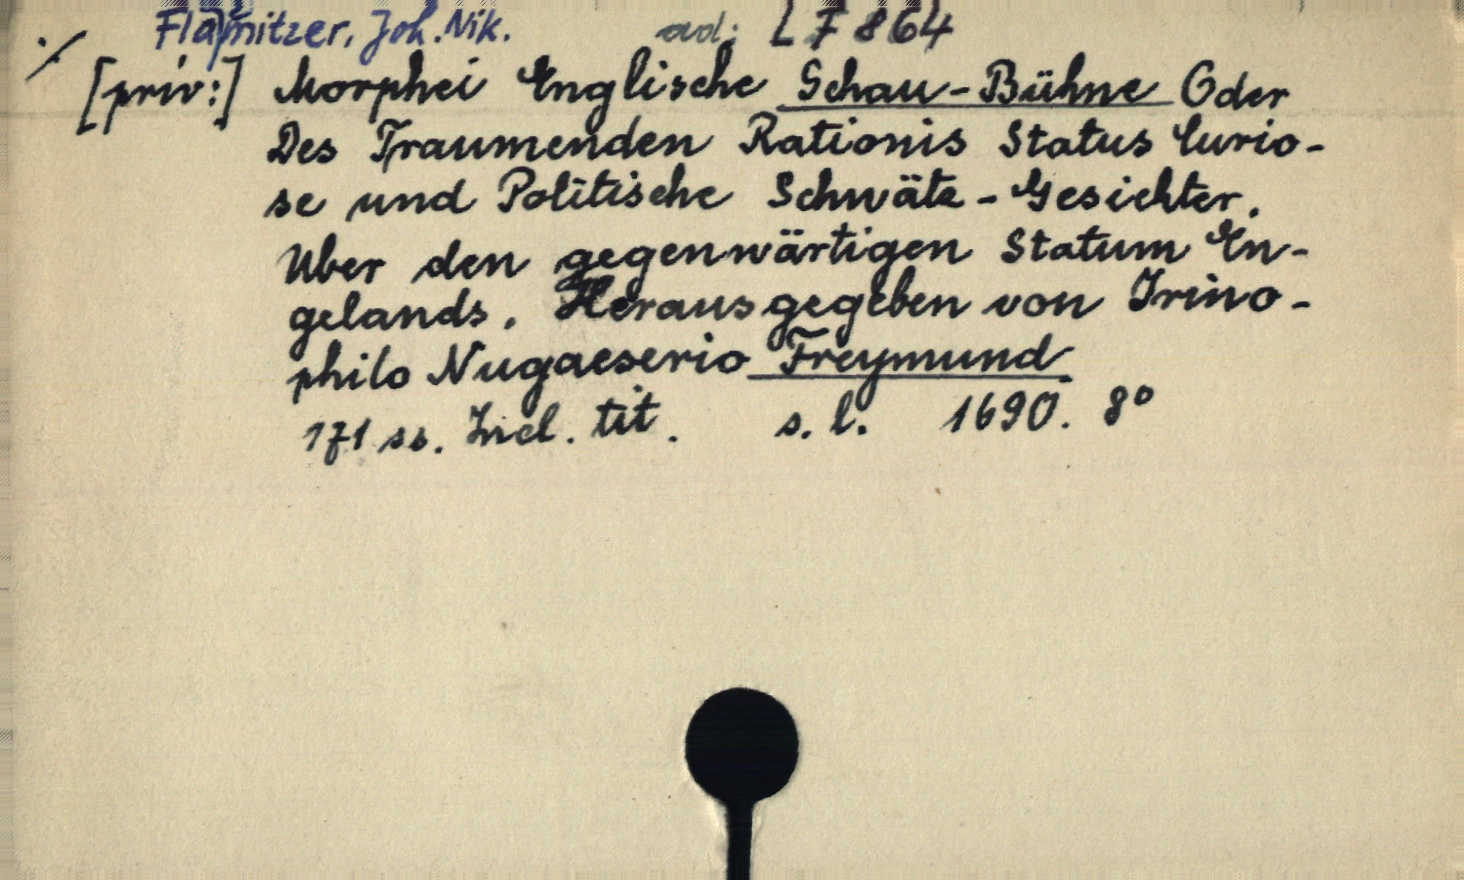 Flämitzer, Joh. Nik. ad: L F 864
[priv:] Morphei Englische Schau-Bühne Oder
Des Traumenden Rationis Status Curio-
se und Politische Schwätz-Gesichter.
Uber den gegenwärtigen Statum En-
gelands. Herausgegeben von Irino-
philo Nugaeserio Freymund
171 ss. Incl. tit. s. l. 1690. 8°